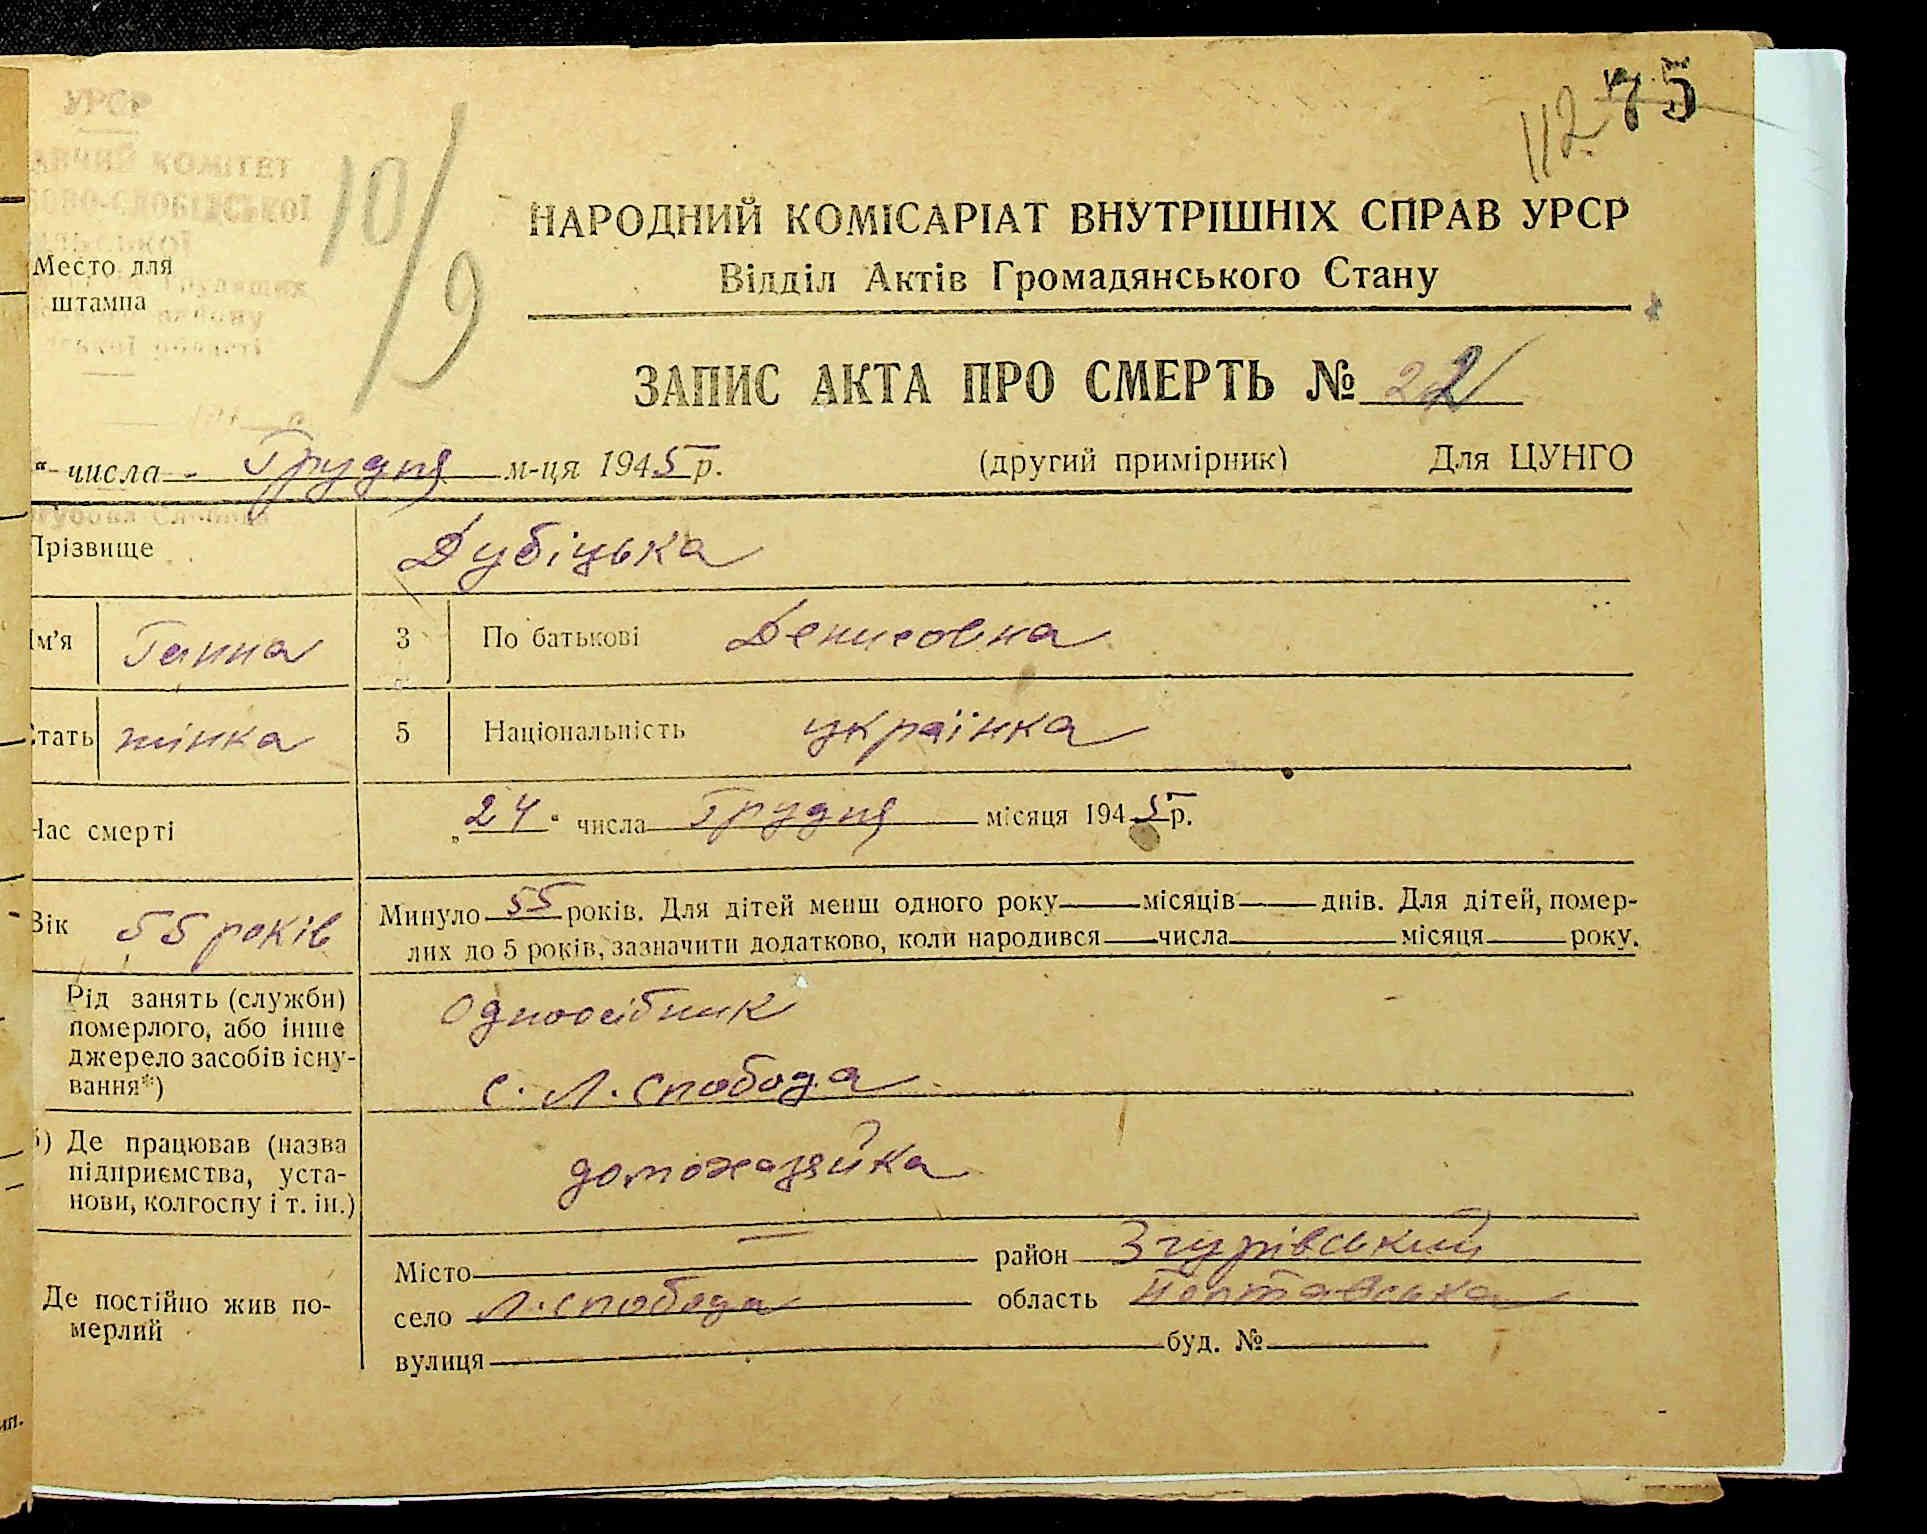 УРСР
КОМІТЕТ
СЛОБІДСЬКОЇ
Место для
штампа
10/9
112 75
НАРОДНИЙ КОМІСАРІАТ ВНУТРІШНІХ СПРАВ УРСР
Відділ Актів Громадянського Стану
ЗАПИС АКТА ПРО СМЕРТЬ № 22
“ числа Грудня м-ця 1945 р. (другий примірник) Для ЦУНГО
Прізвище Дубіцька
Ім’я Ганна 3 По батькові Денисовна
Стать жінка 5 Національність українка
Час смерті „24“ числа Грудня місяця 1945 р.
Вік 55 років Минуло 55 років. Для дітей менш одного року місяців днів. Для дітей, помер-
лих до 5 років, зазначити додатково, коли народився числа місяця року.
Рід занять (служби)
померлого, або інше
джерело засобів існу-
вання*)
Одноосібник
с. Л. Слобода
б) Де працював (назва
підприємства, уста-
нови, колгоспу і т. ін.)
домохазяйка
Де постійно жив по-
мерлий
Місто район Згурівський
село Л. слобода область Полтавська
вулиця буд. №